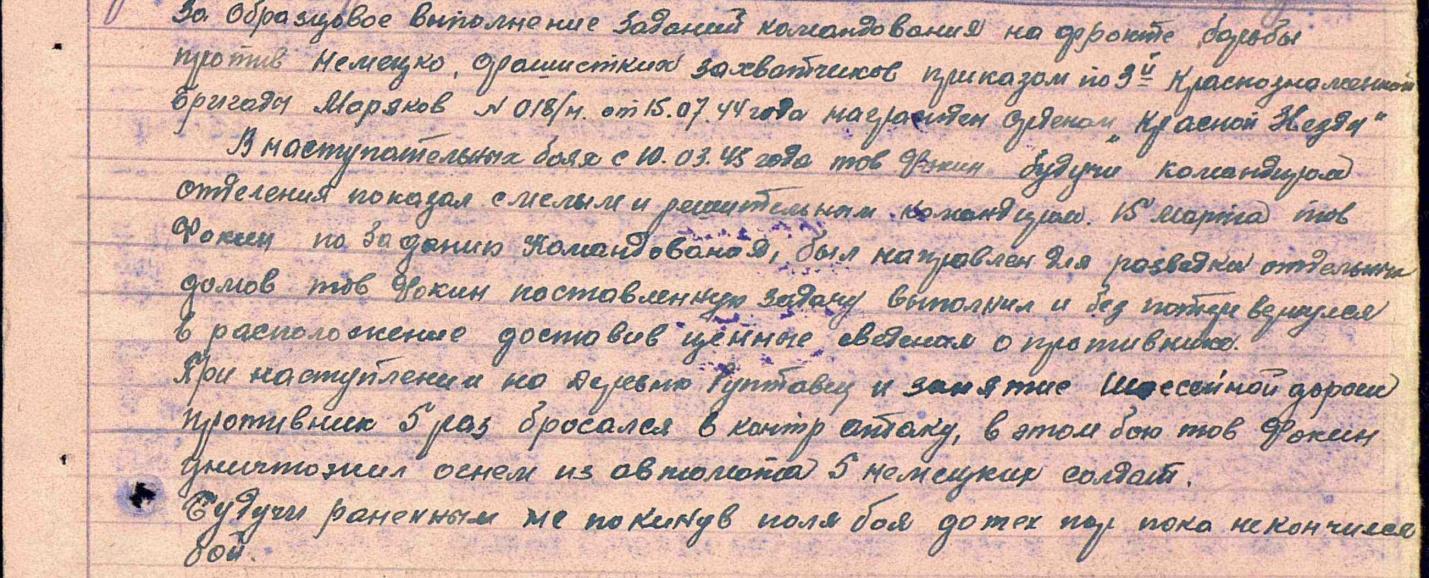 За Образцовое выполнение заданий командования на фронте борьбы
против Немецко, Фашистких захватчиков приказом по 3й Краснознаменной
бригады Моряков N 018/н. от 15.07.44 года награжден Орденом „Красной Звезды"
В наступательных боях с 10.03.45 года тов Фокин будучи командиром
отделения показал смелым и решительным командиром. 15 Марта тов
Фокин по заданию Командования, был направлен для разведки отдельных
домов тов Фокин поставленную задачу выполнил и без потерь вернулся
в расположение доставив ценные сведения о противнике.
При наступлении на деревню и занятие Шоссейной дороги
противник 5 раз бросался в контр атаку, в этом бою тов Фокин
уничтожил огнем из автомата 5 немецких солдат.
Будучи раненным не покинув поля боя до тех пор пока не кончился
бой.